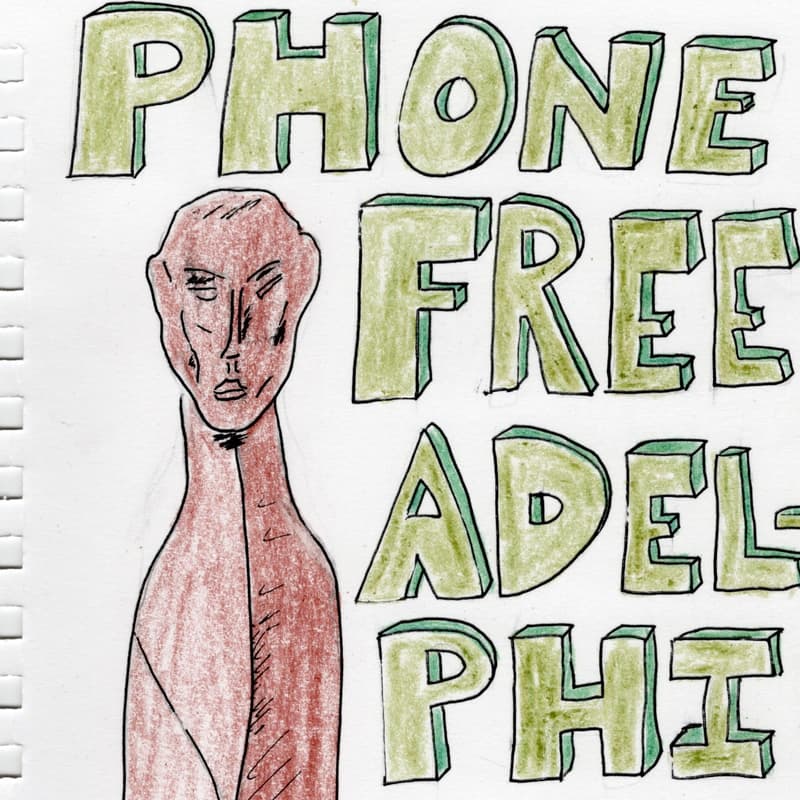 PHONE
FREE
ADEL-
PHI